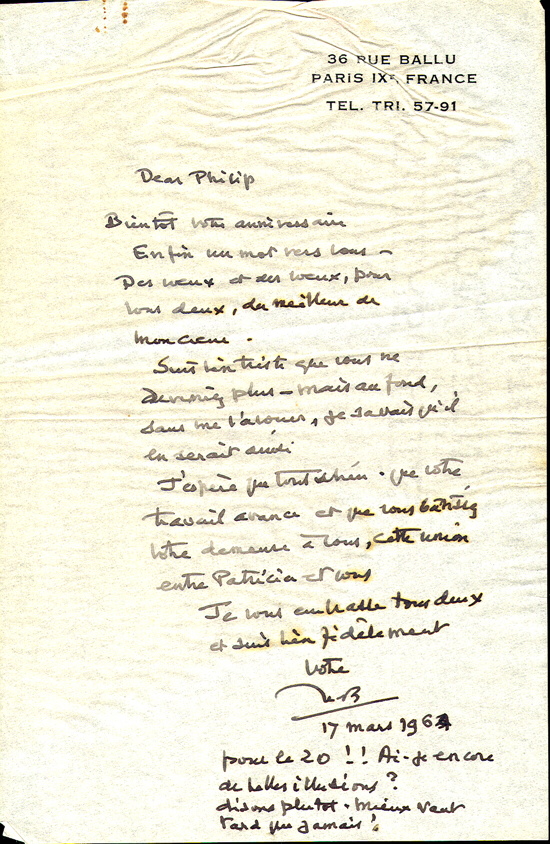 36 RUE BALLU
PARIS IXᵉ FRANCE
TEL. TRI. 57-91
Dear Philip
Bientôt votre anniversaire
Enfin un mot vers vous —
Des vœux et des vœux, pour
tous deux, du meilleur de
mon cœur.
Suis bien triste que vous ne
plus — mais au fond,
sans me l'avouer, je savais qu'il
en serait ainsi
J'espère que tout va bien. que votre
travail avance et que vous bâtissez
votre demeure à vous, cette union
entre Patricia et vous
Je vous embrasse tous deux
et suis bien fidèlement
Votre
NB
17 mars 1964
pour le 20 !! Ai-je encore
de belles illusions ?
disons plutôt. Mieux vaut
tard que jamais !